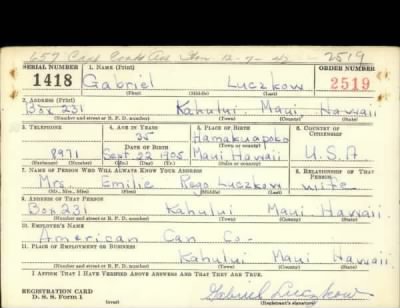 12-7-42 2519
SERIAL NUMBER 1. NAME (Print) ORDER NUMBER
1418 Gabriel Luczkow 2519
(First) (Middle) (Last)
2. ADDRESS (Print)
Box 231 Kahului, Maui Hawaii
(Number and street or R. F. D. number) (Town) (County) (State)
3. TELEPHONE 4. AGE IN YEARS 5. PLACE OF BIRTH 6. COUNTRY OF CITIZENSHIP
35 Hamakuapoko
DATE OF BIRTH (Town or county)
8971 Sept. 22 1905 Maui Hawaii U.S.A.
(Exchange) (Number) (Mo.) (Day) (Yr.) (State or country)
7. NAME OF PERSON WHO WILL ALWAYS KNOW YOUR ADDRESS 8. RELATIONSHIP OF THAT PERSON
Mrs. Emilie Rego Luczkow wife
(Mr., Mrs., Miss) (First) (Middle) (Last)
9. ADDRESS OF THAT PERSON
Box 231 Kahului Maui Hawaii
(Number and street or R. F. D. number) (Town) (County) (State)
10. EMPLOYER'S NAME
American Can Co.
11. PLACE OF EMPLOYMENT OR BUSINESS
Kahului Maui Hawaii
(Number and street or R. F. D. number) (Town) (County) (State)
I AFFIRM THAT I HAVE VERIFIED ABOVE ANSWERS AND THAT THEY ARE TRUE.
REGISTRATION CARD
D. S. S. Form 1 (over) Gabriel Luczkow
(Registrant's signature)